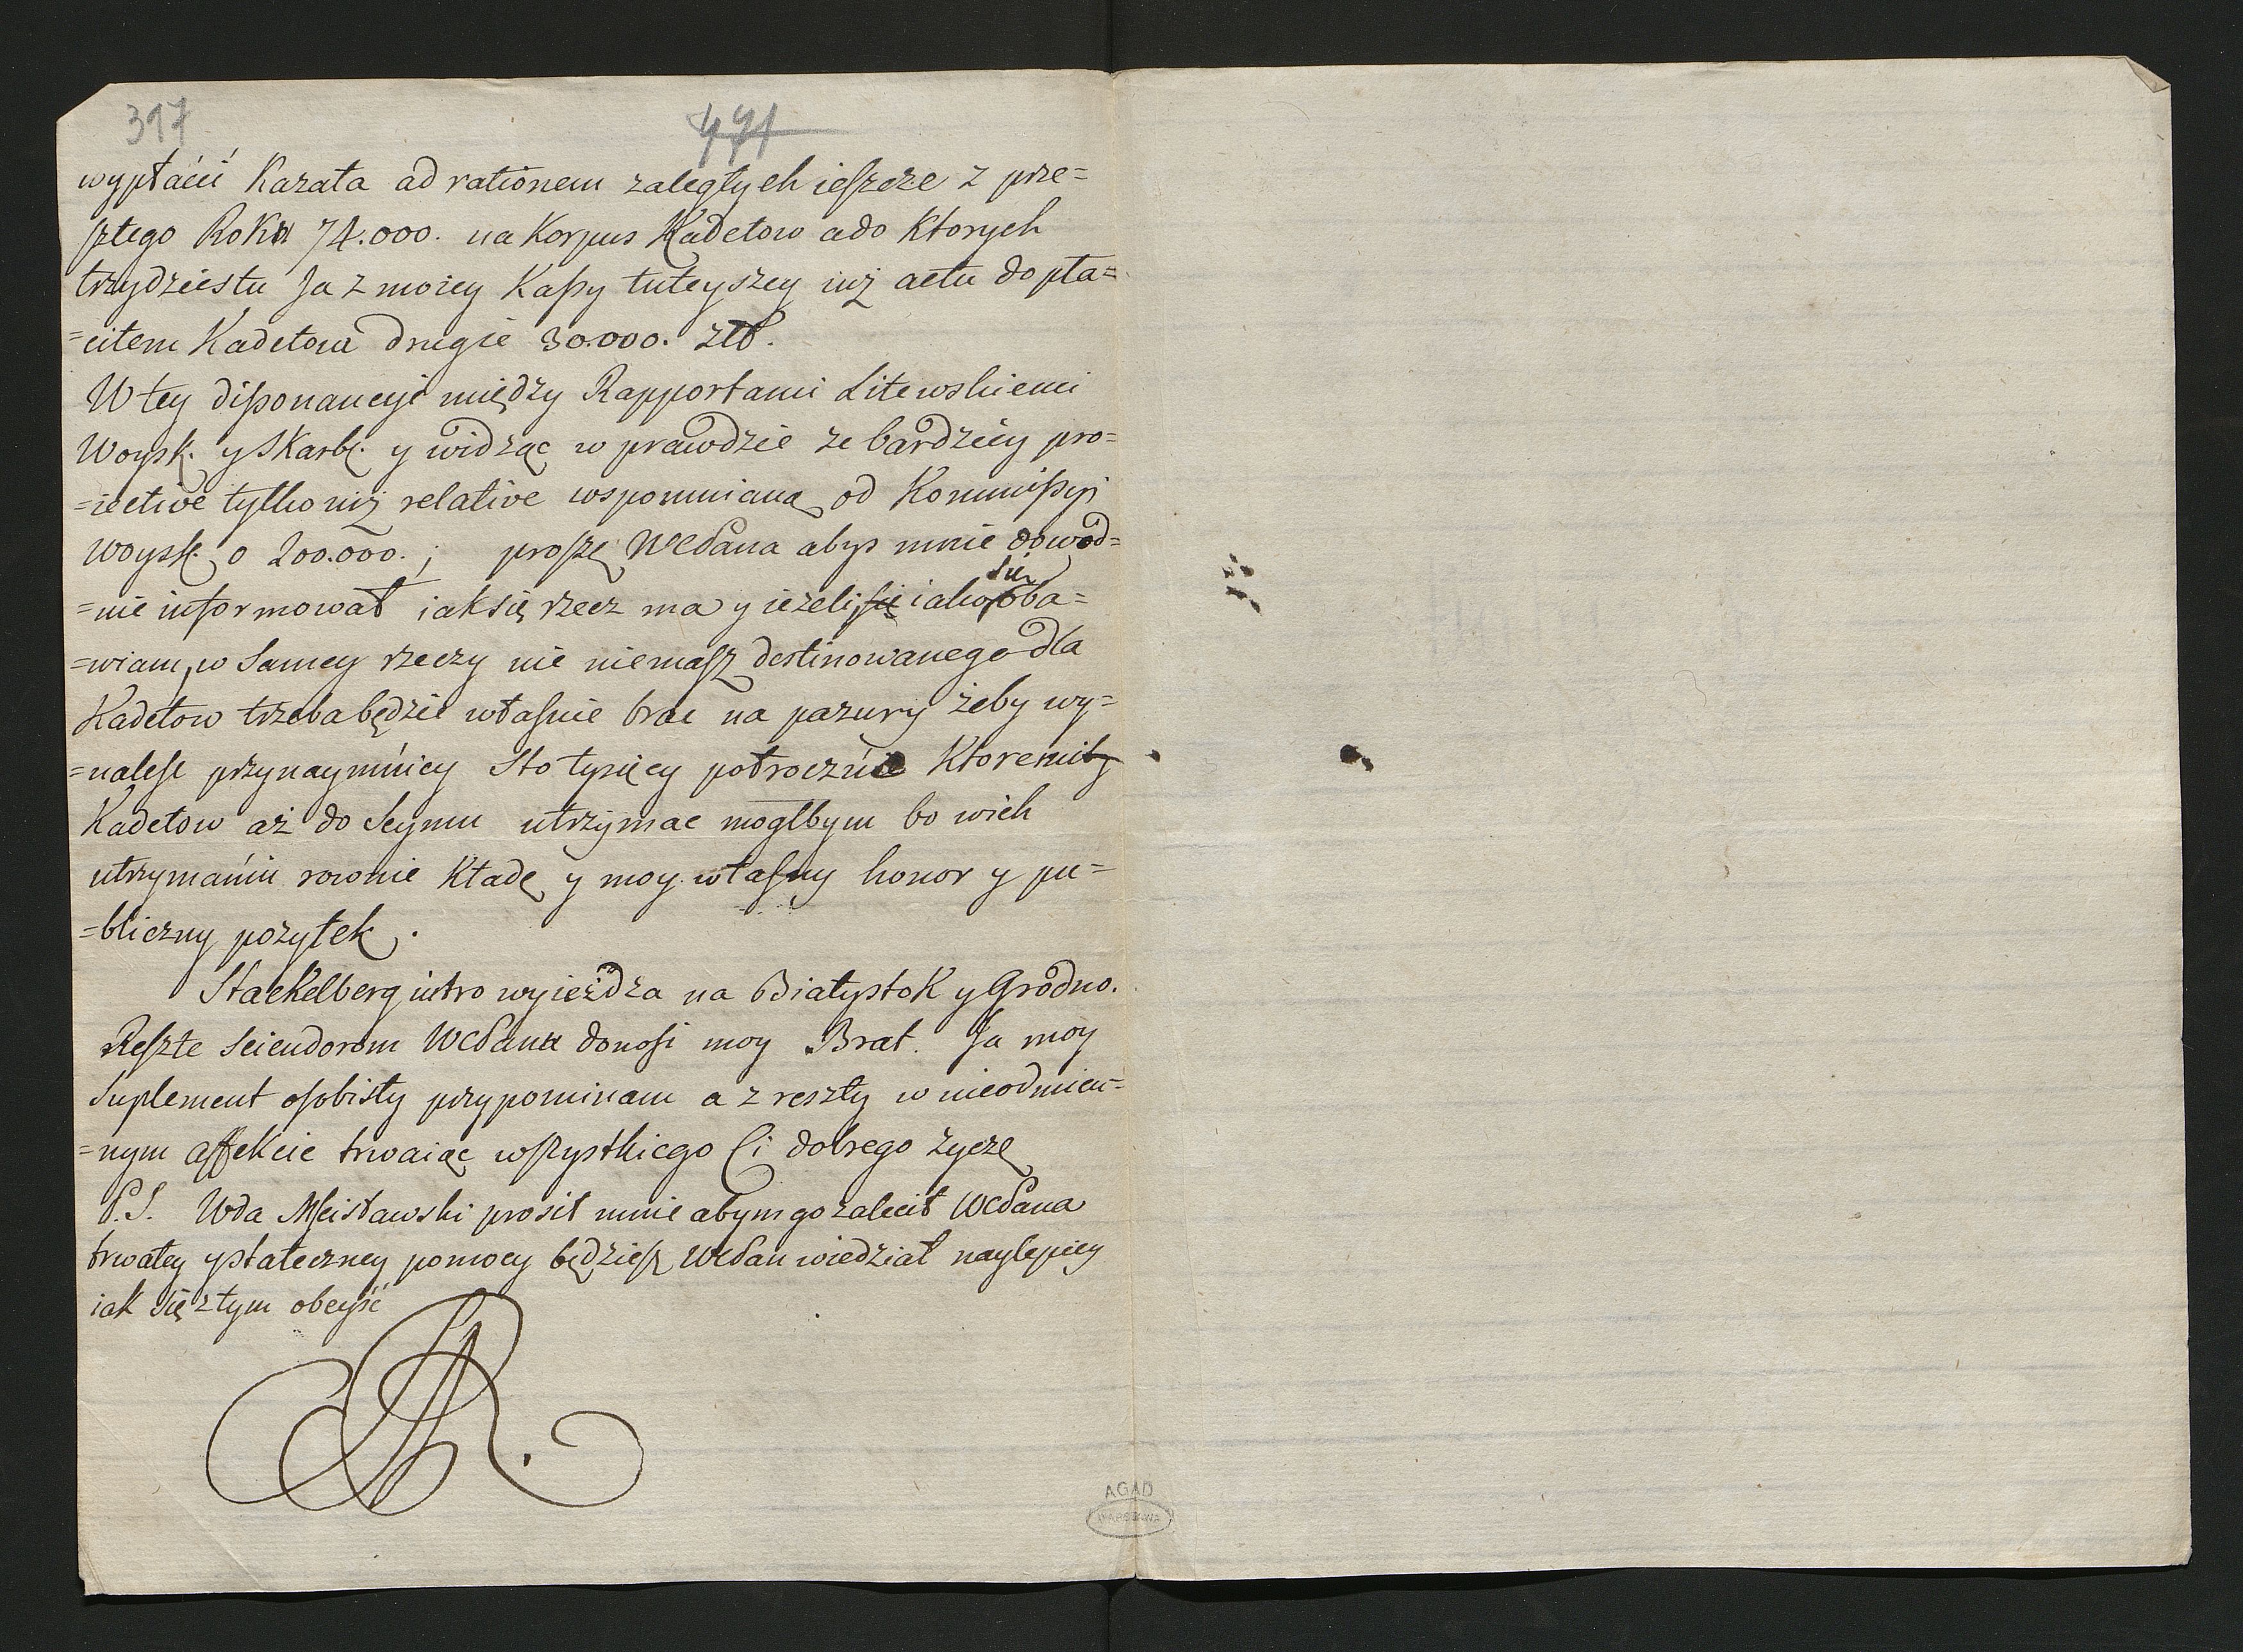 317
491
wypłacić kazała ad rationem zaległych ieszcze z prze=
szłego Roku 74.000. na Korpus Kadetow a do ktorych
trzydziestu Ja z moiey Kassy tuteyszey iuż actu do pła=
=ciłem Kadetom drugie 30.000. Zło.
W tey dissonancyi między Rapportami Litewskiemi
Woysk. y Skarb. y widząc w prawdzie ze bardziey pro=
=iective tylko niż relative wspomnianą od Kommissyi
Woysk. o 200.000.; proszę WCPana abys mnie dowod=
=nie informował iak się rzecz ma y ieżeli się iako się oba=
=wiam, w samey rzeczy nic niemasz destinowanego dla
Kadetow trzeba będzie własnie brac na pazury żeby wy=
=nalesc przynaymniey Sto tysięcy połrocznie ktoremiby
Kadetow aż do Seymu utrzymac mogłbym bo w ich
utrzymaniu rownie kładę y moy własny honor y pu=
=bliczny pożytek.
Stackelberg iutro wyieżdza na Białystok y Grodno.
Reszte Sciendorom WCPana donosi moy Brat. Ja moy
Suplement osobisty przypominam a z reszty w nieodmien=
=nym affekcie trwaiąc wszystkiego Ci dobrego życzę
P.S. Wda Mscisławski prosił mnie abym go zalecił WCPana
trwałey y stateczney pomocy będziesz WCPan wiedział naylepiey
iak się z tym obeyść
SAR.
AGAD
WARSZAWA